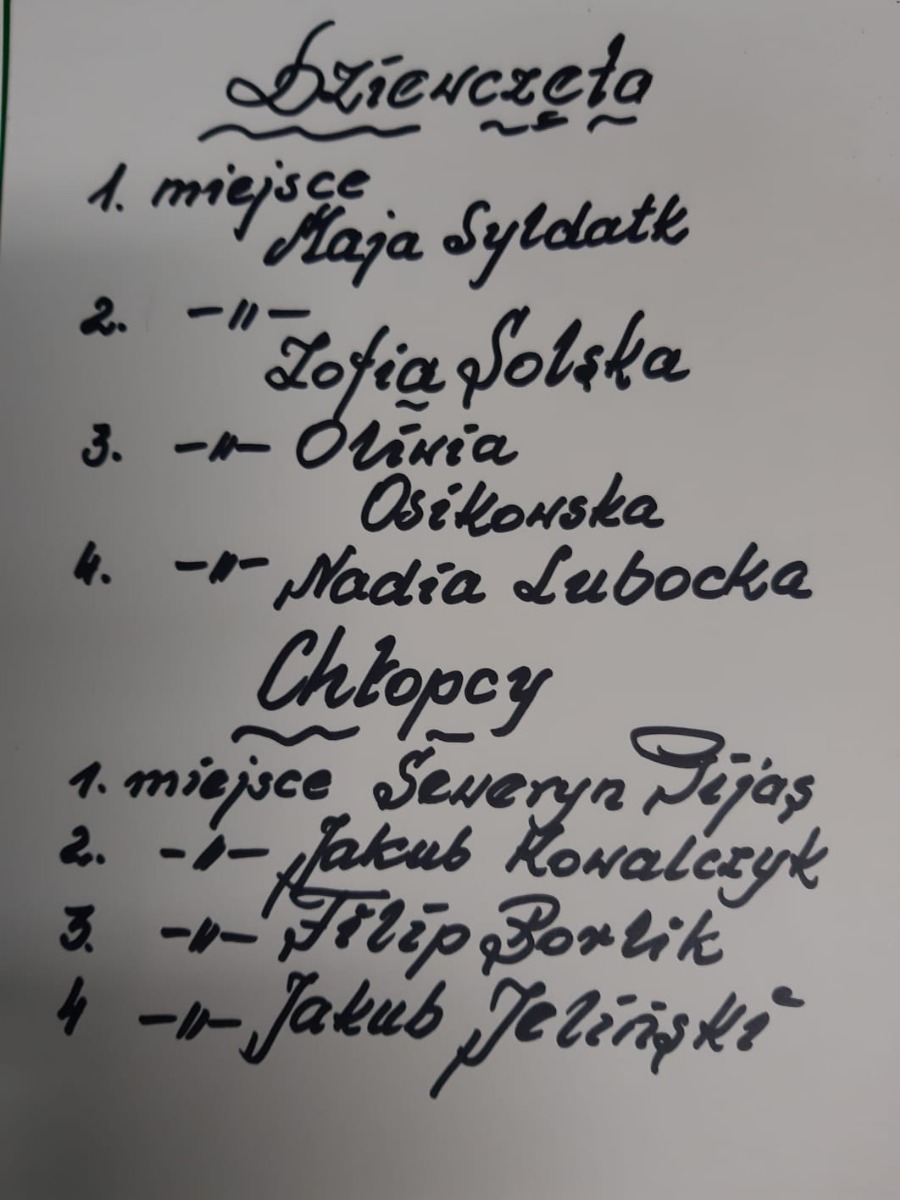 Dziewczęta
1. miejsce
Maja Syldatk
2. -"-
Zofia Solska
3. -"- Oliwia
Osikowska
4. -"- Nadia Lubocka
Chłopcy
1. miejsce Seweryn Pijas
2. -"- Jakub Kowalczyk
3. -"- Filip Borlik
4 -"- Jakub Jeliński